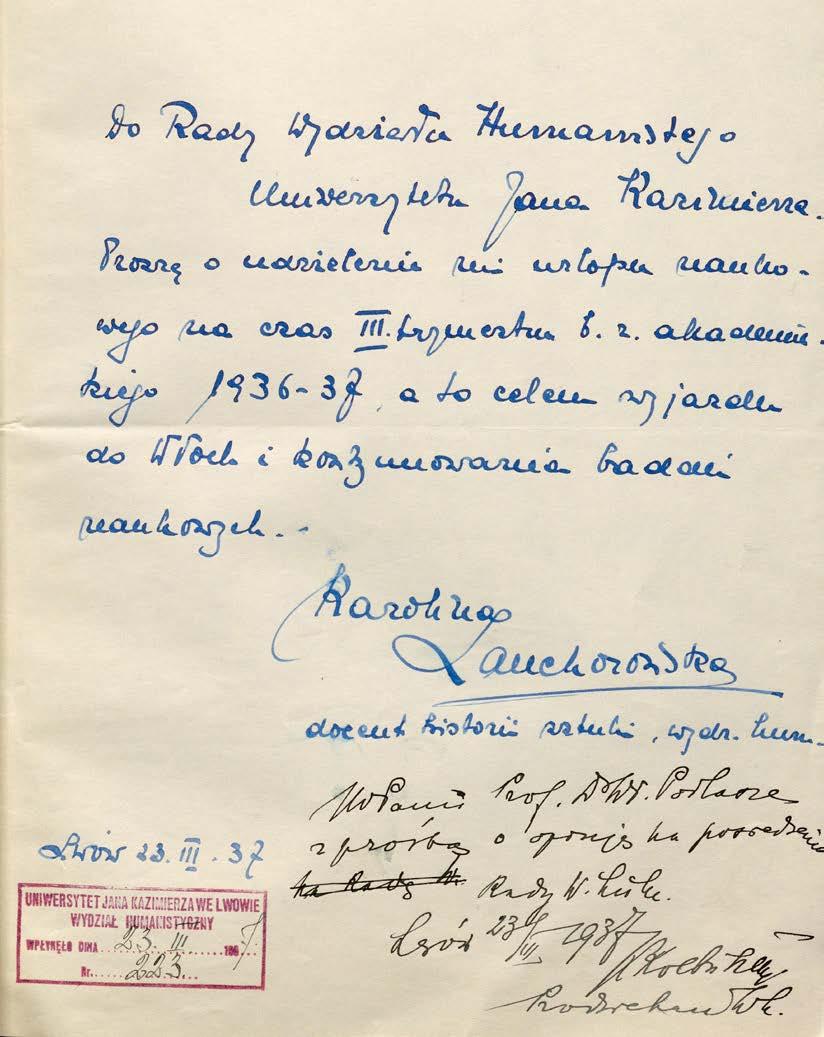 Do Rady Wydziału Humanistego
Uniwersytetu Jana Kazimierza.
Proszę o udzielenie mi urlopu nauko-
wego na czas III. trymestru b. r. akademic-
kiego 1936-37, a to celem wyjazdu
do Włoch i kontynuowania badań
naukowych.
Karolina
Lanckorońska
docent historii sztuki, wydz. hum.
Prof. Dr Wł. Podlacze
z prośbą o opinję na posiedzenie
na Radę W. Rady W. hum.
Lwów 23. III. 37
Lwów 23/III 1937
UNIWERSYTET JANA KAZIMIERZA WE LWOWIE
WYDZIAŁ HUMANISTYCZNY
WPŁYNĘŁO DNIA 23. III. 1937
Nr. 223